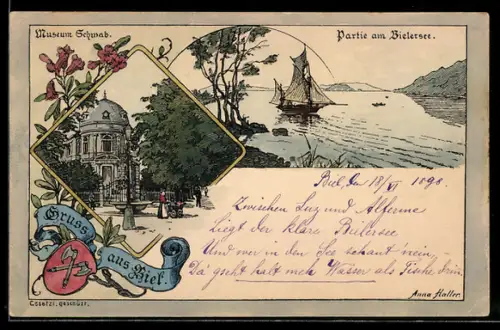 Museum Schwab.
Partie am Bielersee.
Biel, den 18/VI 1898.
Zwischen Luz und Alferme
Liegt der klare Bielersee
Und wer in den See schaut 'nein,
Da geht halt meh Wasser als Fische drin.
Gruss
aus Biel.
Gesetzl. geschützt.
Anna Haller.